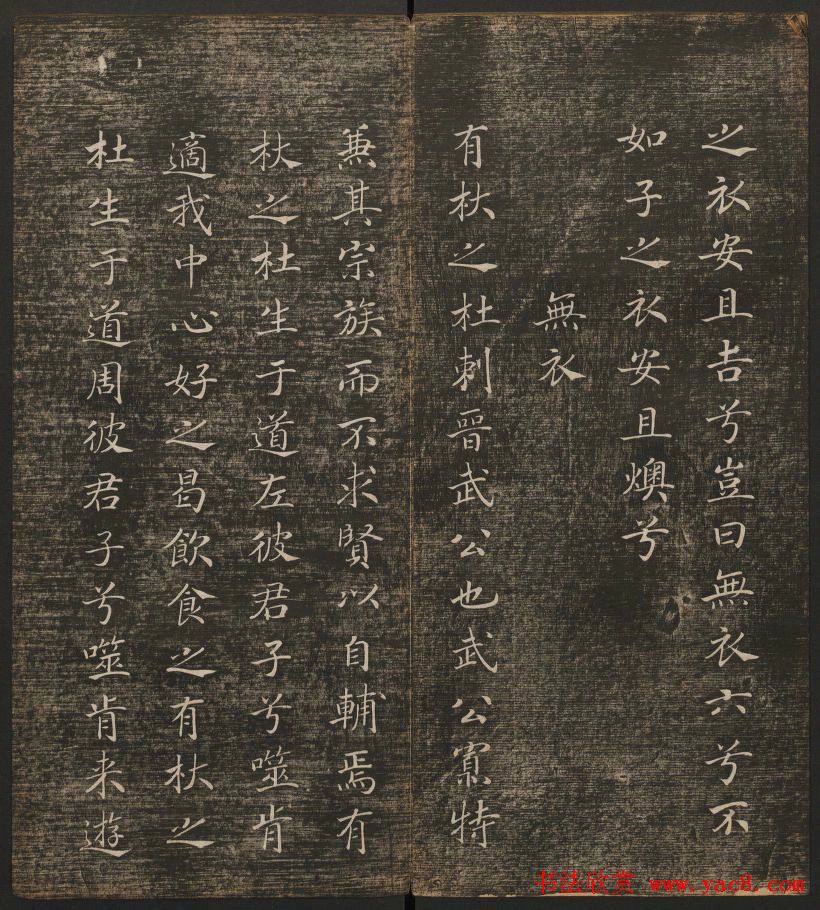 之衣安且吉兮豈曰無衣六兮不
如子之衣安且燠兮
無衣
有杕之杜刺晉武公也武公寡特
兼其宗族而不求賢以自輔焉有
杕之杜生于道左彼君子兮噬肯
適我中心好之曷飲食之有杕之
杜生于道周彼君子兮噬肯来遊
书法欣赏 www.yac8.com